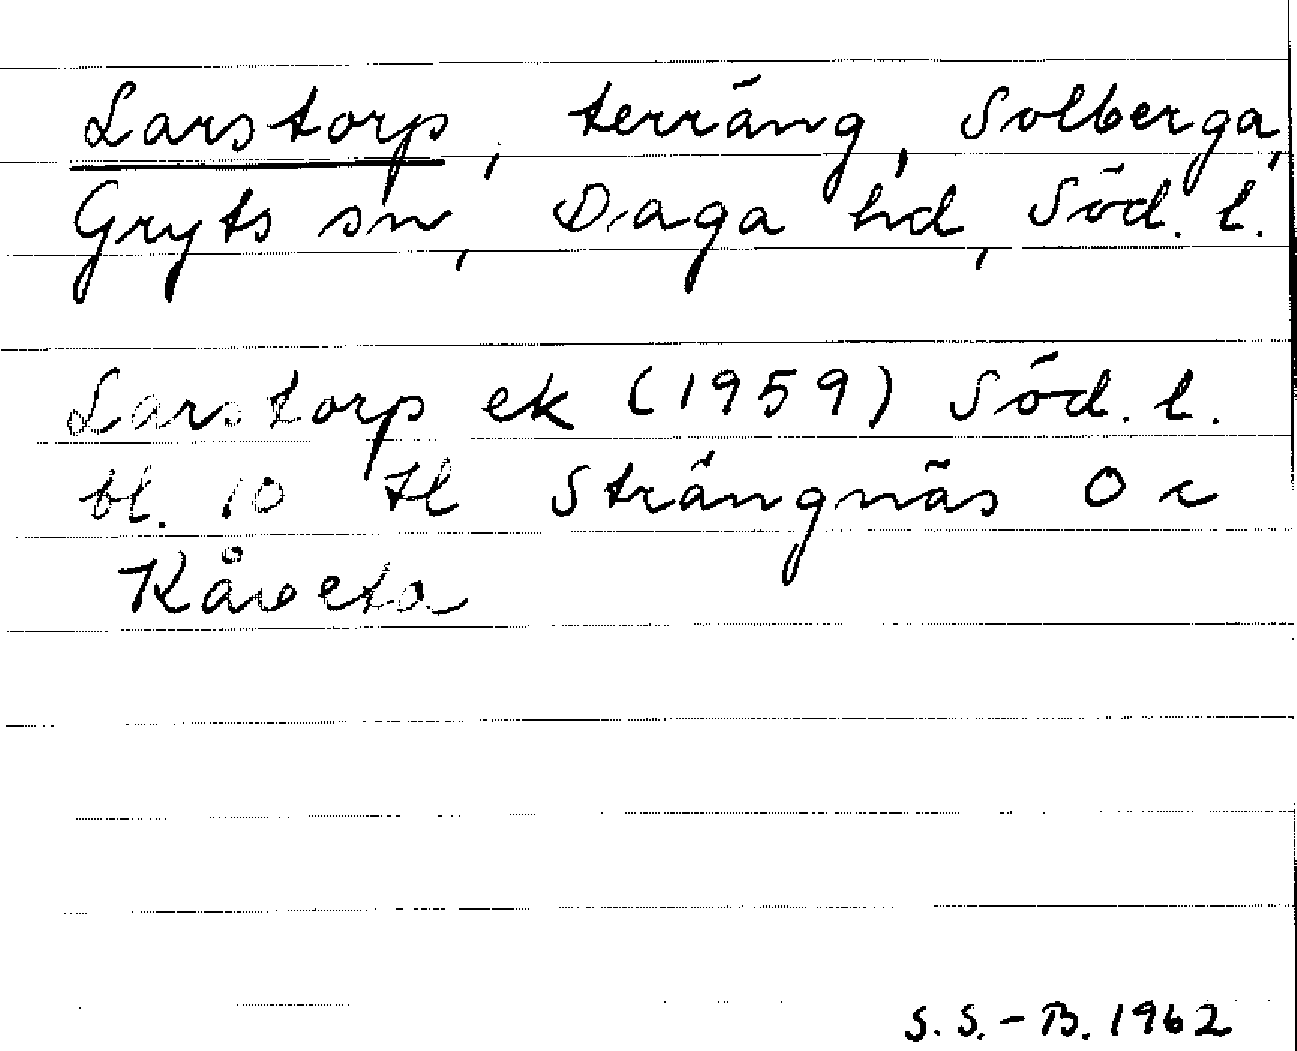 Larstorp, terräng, Solberga,
Gryts sn, Daga hd, Söd. l.
Larstorp ek (1959) Söd. l.
bl. 10 tl Strängnäs O c
Kåveta
S.S.-B. 1962